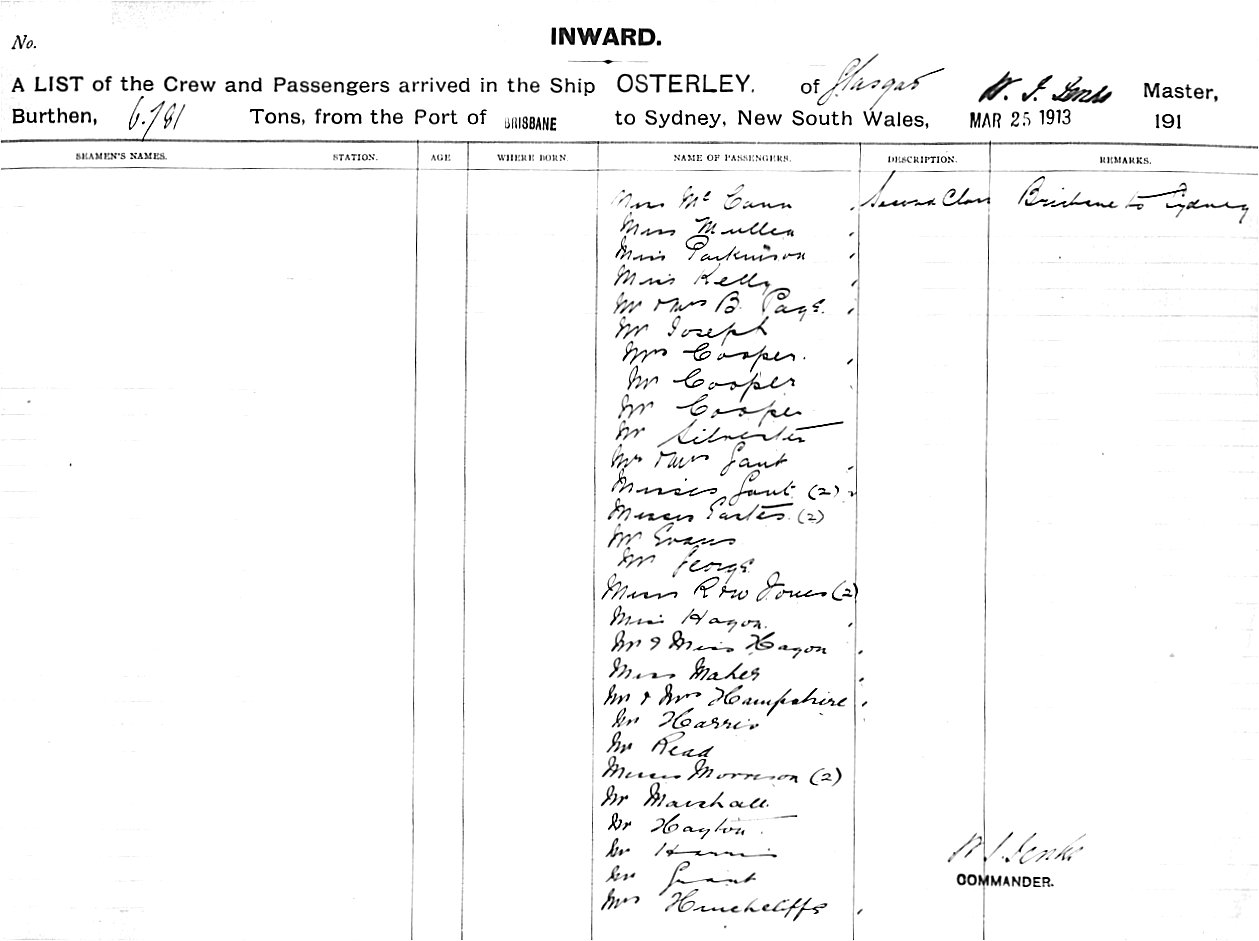 INWARD.
No.
A LIST of the Crew and Passengers arrived in the Ship OSTERLEY. of Glasgow W. J. Jenks Master,
Burthen, 6.781 Tons, from the Port of BRISBANE to Sydney, New South Wales, MAR 25 1913 191
SEAMEN'S NAMES. STATION. AGE WHERE BORN. NAME OF PASSENGERS. DESCRIPTION. REMARKS.
Miss Mc Cann Second Class Brisbane to Sydney
Miss Mullen
Miss Parkinson
Miss Kelly
Mr & Mrs B. Page
Mr Joseph
Mrs Cooper.
Mr Cooper
Mr Cooper
Mr Silvester
Mr & Mrs Gant
Misses Gant (2)
Misses (2)
Mr Evans
Mr George
Misses Rew Jones (2)
Miss Hagon.
Mr & Miss Hagon
Miss Maher
Mr & Mrs Hampshire
Mr Harris
Mr Read
Misses Morrison (2)
Mr Marshall
Dr Hayton
Harris
Grant
Mrs Hinchcliffe
W. J. Jenks
COMMANDER.